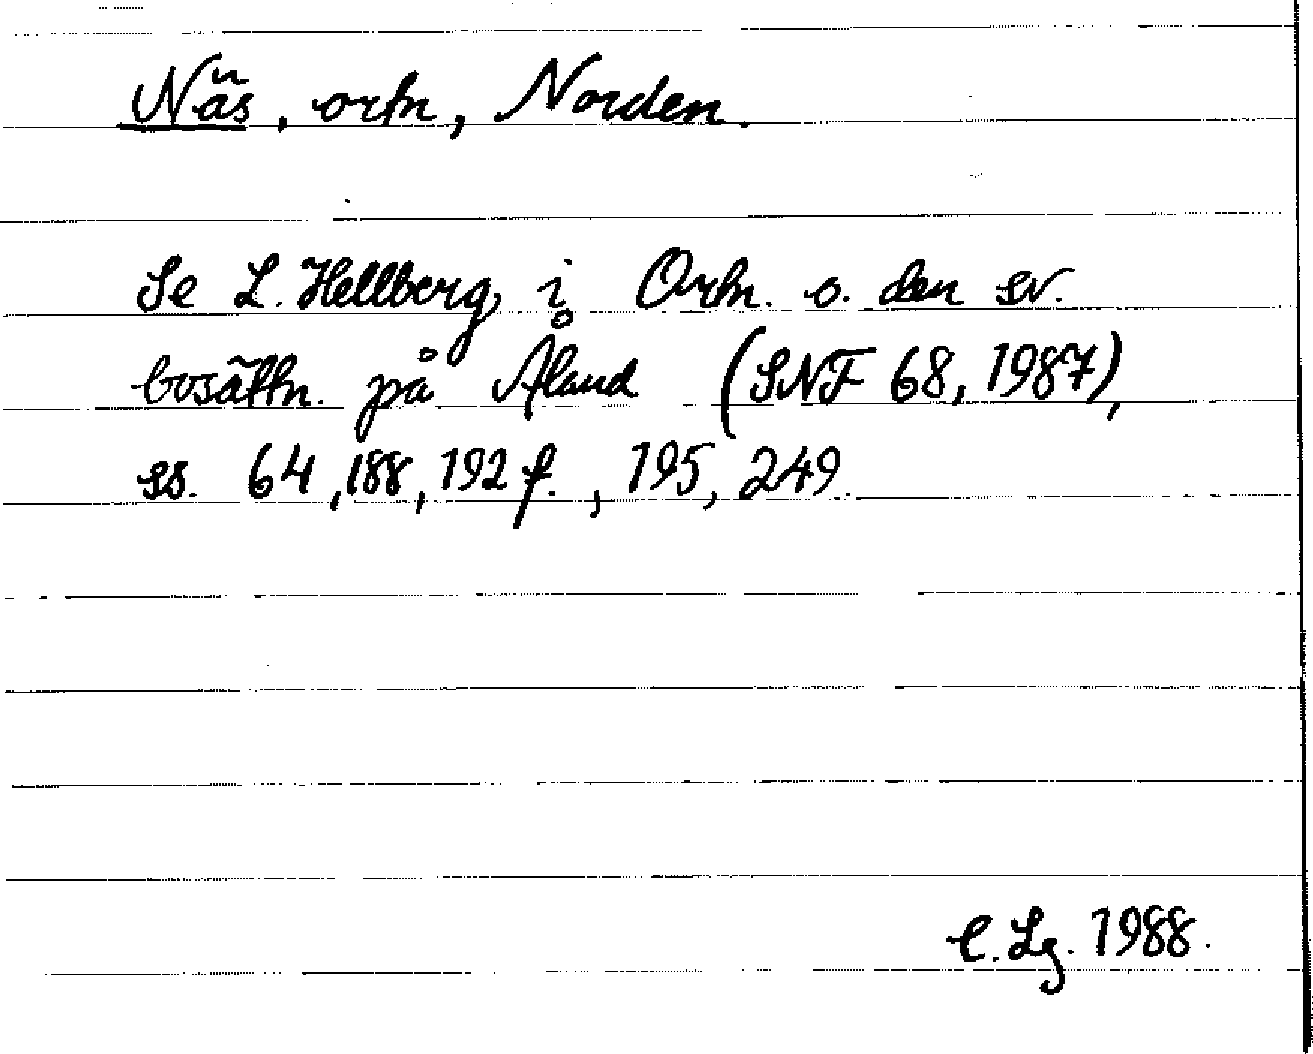 Näs, ortn, Norden.
Se L. Hellberg, i Ortn. o. den sv.
bosättn. på Åland (SNF 68, 1987),
ss. 64, 188, 192 f., 195, 249.
C. Lg. 1988.